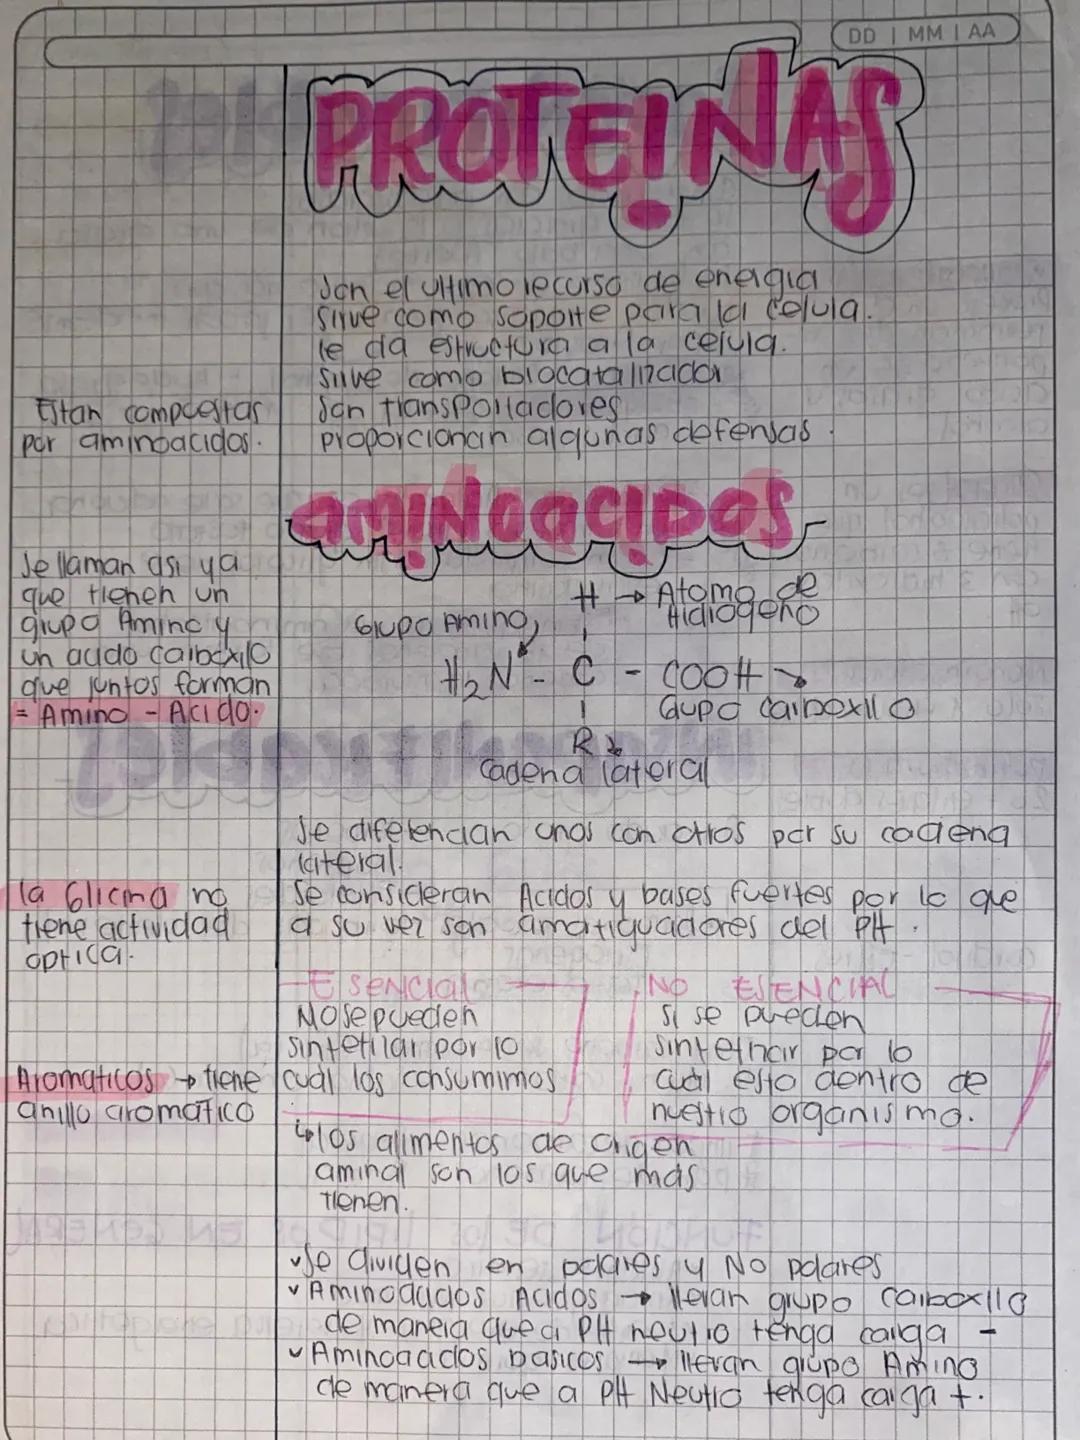 DD | MM | AA
PROTEINAS
Son el ultimo recurso de energia
Sirve como soporte para la celula.
le da estructura a la celula.
Sirve como biocatalizador
Son transportadores
proporcionan algunas defensas.
Estan compuestas
por aminoacidos.
aminoacidos
Se llaman asi ya
que tienen un
grupo Amino y
un acido carboxilo
que juntos forman
= Amino - Acido.
H → Atomo de
Hidrogeno
Grupo Amino
H₂N - C - COOH
Grupo carboxilo
R
cadena lateral
Se diferencian unos con otros por su cadena
lateral.
Se consideran Acidos y bases fuertes por lo que
a su vez son amortiguadores del PH.
la Glicina no
tiene actividad
optica.
Esencial
No se pueden
sintetizar por lo
cual los consumimos
NO ESENCIAL
si se pueden
sintetizar por lo
cual esto dentro de
nuestro organismo.
Aromaticos → tiene
anillo aromatico
↳ los alimentos de origen
aminal son los que mas
tienen.
✓ Se dividen en polares y No polares
✓ Aminoacidos Acidos → llevan grupo carboxilo
de manera que a PH neutro tenga carga -
✓ Aminoacidos basicos → llevan grupo Amino
de manera que a PH Neutro tenga carga +.